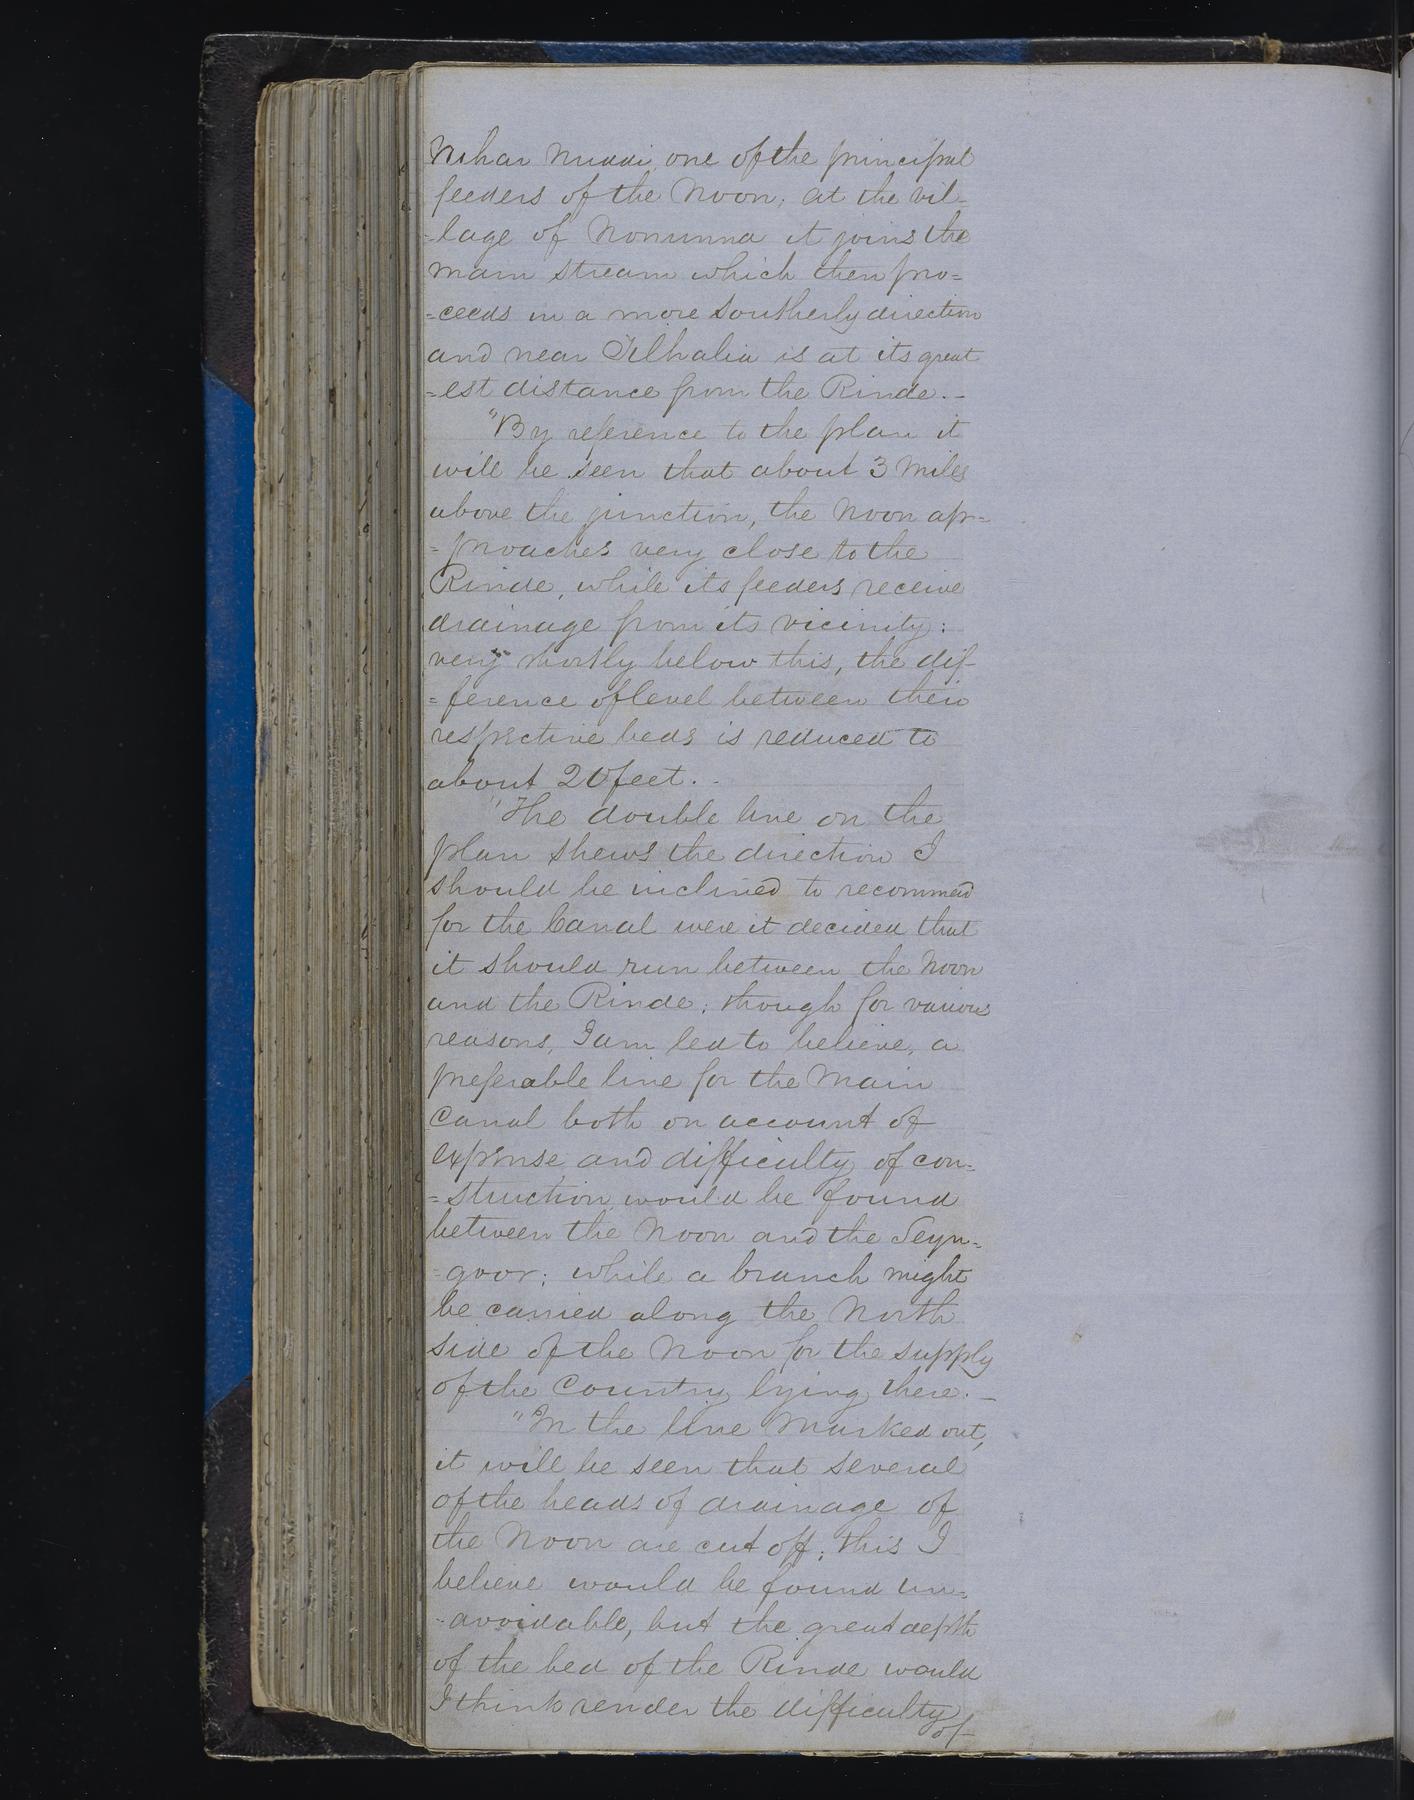 Nihar Nuddi, one of the principal
feeders of the Noon; at the vil-
-lage of Nonunna it joins the
main stream which then pro=
=ceeds in a more Southerly direction
and near Tilhalia is at its great
=est distance from the Rinde.-
"By reference to the plan it
will be seen that about 3 Miles
above the junction, the Noon ap=
=proaches very close to the
Rinde, while its feeders receive
drainage from its vicinity:
very shortly below this, the dif-
=ference of level between their
respective beds is reduced to
about 20 feet.-
"The double line on the
plan shews the direction I
should be inclined to recommend
for the Canal were it decided that
it should run between the Noon
and the Rinde; though for various
reasons, I am led to believe, a
preferable line for the Main
Canal both on account of
expense and difficulty of con=
=struction would be found
between the Noon and the Seyn=
=goor; while a branch might
be carried along the North
side of the Noon for the supply
of the Country lying there.-
"In the line marked out,
it will be seen that several
of the heads of drainage of
the Noon are cut off; this I
believe would be found un=
=avoidable, but the great depth
of the bed of the Rinde would
I think render the difficulty
of